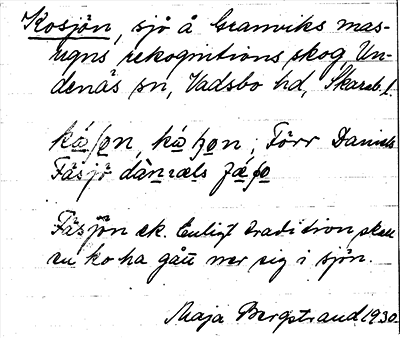 Kosjön, sjö å Granviks mas-
ugns rekognitionsskog, Un-
denäs sn, Vadsbo hd, Skarab. l.
Förr Daniels
Fäsjö
Fäsjön ek. Enligt tradition skall
en ko ha gått ner sig i sjön.
Maja Bergstrand 1930